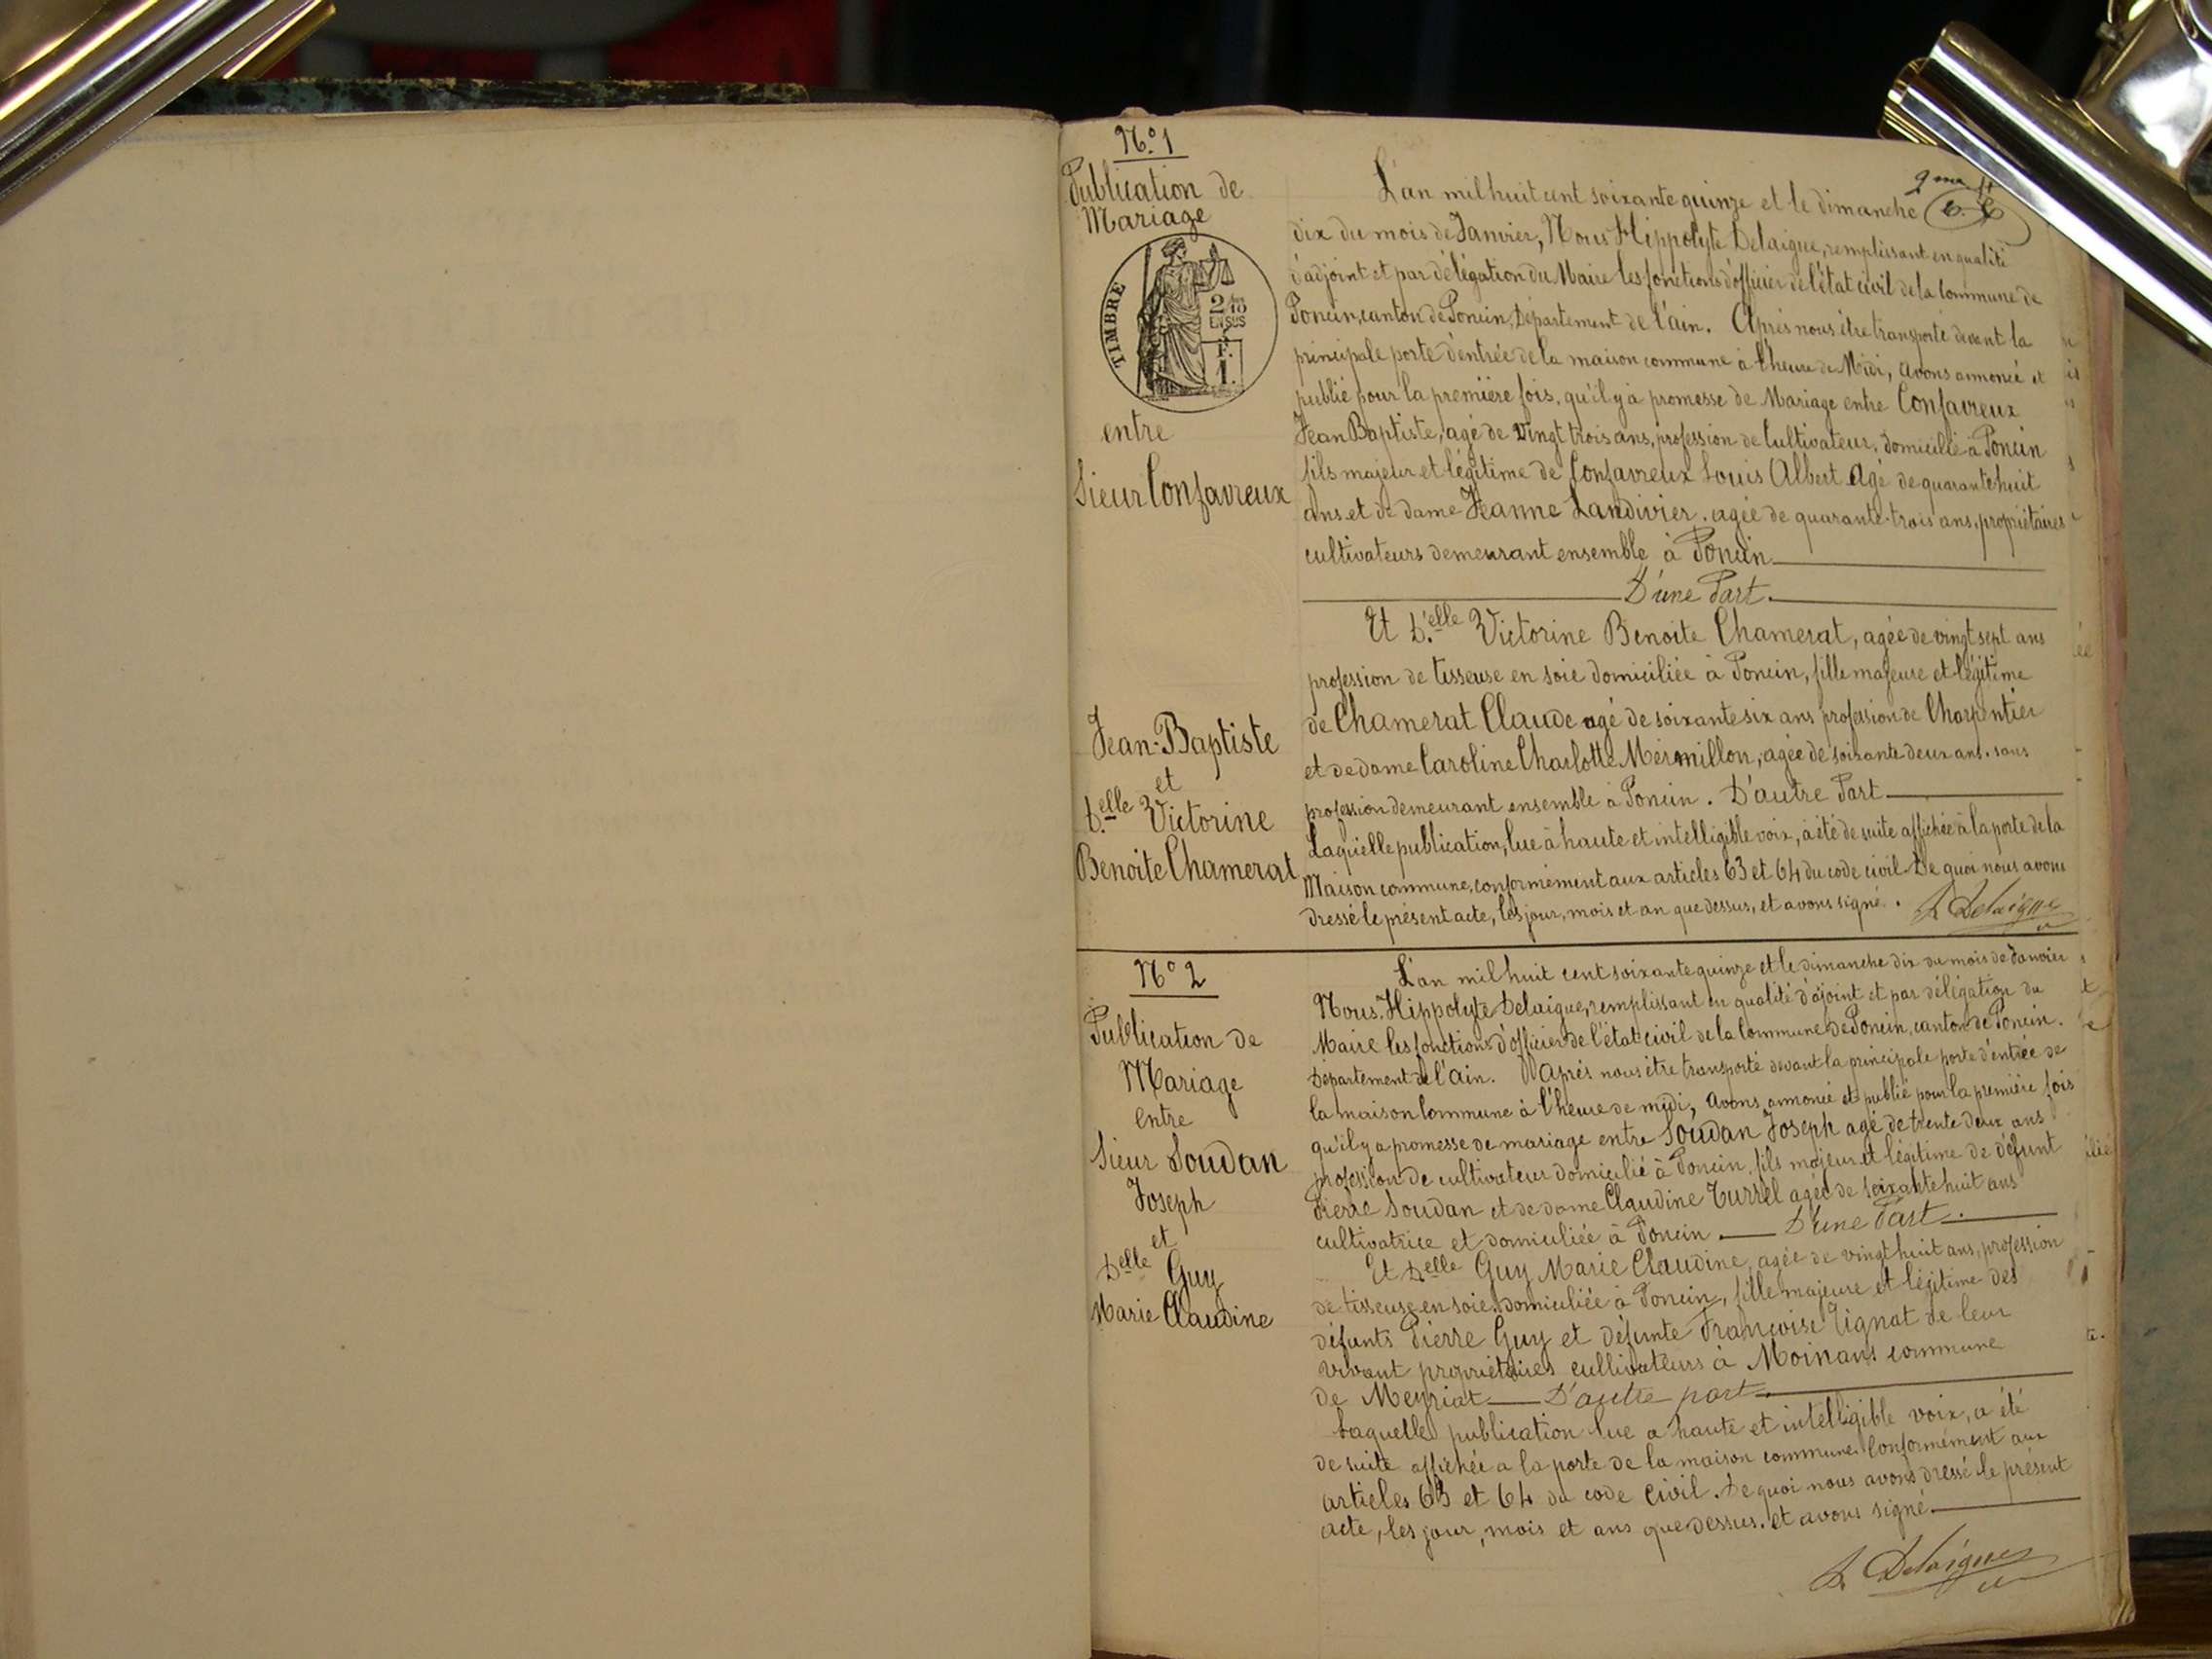 N.º 1
Publication de
Mariage
TIMBRE
2/10
EN SUS
F.
1.
entre
Sieur Confavreux
Jean-Baptiste
et
D.elle Victorine
Benoite Chamerat
L'an mil huit cent soixante quinze et le dimanche
dix du mois de Janvier, Nous Hippolyte Delaigue, remplissant en qualité
d'adjoint et par délégation du Maire les fonctions d'officier de l'état civil de la Commune de
Poncin, canton de Poncin, Département de l'ain. Après nous être transporté devant la
principale porte d'entrée de la maison commune à l'heure de Midi, avons annoncé et
publié pour la première fois, qu'il y à promesse de Mariage entre Confavreux
Jean Baptiste, agé de vingt trois ans, profession de Cultivateur, domicilié à Poncin
fils majeur et légitime de Confavreux Louis Albert Agé de quarante huit
ans et de dame Jeanne Landivier, agée de quarante-trois ans, propriétaires
cultivateurs demeurant ensemble à Poncin
D'une Part.
Et D.elle Victorine Benoite Chamerat, agée de vingt sept ans
profession de tisseuse en soie domiciliée à Poncin, fille majeure et légitime
de Chamerat Claude agé de soixante six ans profession de Charpentier
et de dame Caroline Charlotte Mermillon, agée de soixante deux ans, sans
profession demeurant ensemble à Poncin. D'autre Part
Laquelle publication, lue à haute et intelligible voix, à été de suite affichée à la porte de la
Maison commune, conformément aux articles 63 et 64 du code civil De quoi nous avons
dressé le présent acte, les jour, mois et an que dessus, et avons signé. H Delaigue
Nº 2
Publication de
Mariage
entre
Sieur Soudan
Joseph
et
Delle Guy
Marie Claudine
L'an mil huit cent soixante quinze et le dimanche dix du mois de Janvier
Nous, Hippolyte Delaigue, remplissant en qualité d'ajoint et par délégation du
Maire les fonctions d'officier de l'état civil de la Commune de Poncin, canton de Poncin.
Département de l'ain. Après nous être transporté devant la principale porte d'entrée de
la maison Commune à l'heure de midi, avons annoncé et publié pour la première fois
qu'il y a promesse de mariage entre Soudan Joseph agé de trente deux ans
profession de cultivateur domicilié à Poncin, fils majeur et légitime de défunt
Pierre Soudan et de dame Claudine Turrel agée de soixante huit ans
cultivatrice et domiciliée à Poncin D'une Part.
Et Delle Guy Marie Claudine, agée de vingt huit ans, profession
de tisseuse en soie, domiciliée à Poncin, fille majeure et légitime des
défunts Pierre Guy et défunte Françoise Tignat de leur
vivant propriétaires cultivateurs à Moinans commune
de Meyriat D'autre part.
Laquelle publication lue a haute et intelligible voix, a été
de suite affichée a la porte de la maison commune. Conformément aux
articles 63 et 64 du code civil. De quoi nous avons dressé le présent
acte, les jour, mois et ans que dessus. et avons signé.
H Delaigue